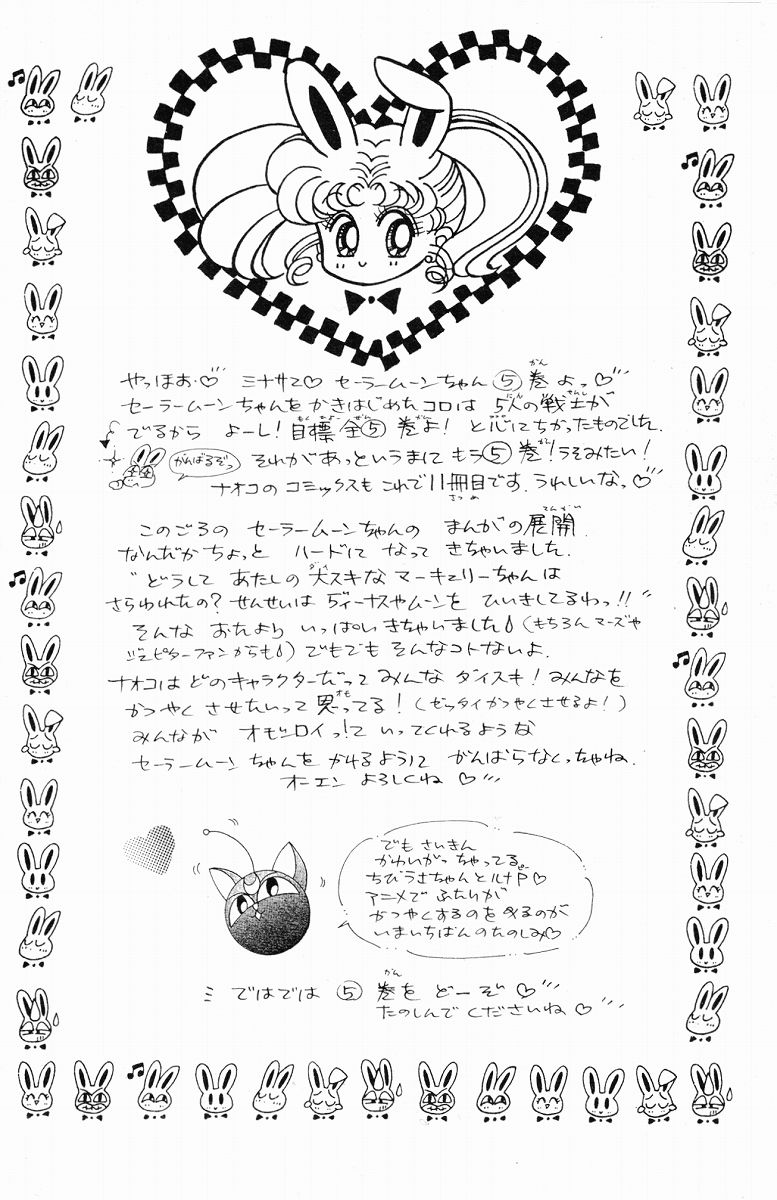 やっほお♡ ミナサマ♡ セーラームーンちゃん ⑤ 巻よっ♡
セーラームーンちゃんを かきはじめた コロは 5人の戦士が
でるから よーし！目標全⑤巻よ！ と心にちかったものでした．
がんばるぞっ
それが あっというまに もう⑤巻！うるみたい！
ナオコの コミックスも これで11冊目です．うれしいなっ♡
このごろの セーラームーンちゃんの まんがの展開．
なんだか ちょっと ハードに なって きちゃいました．
"どうして あたしの 大スキな マーキュリーちゃんは
さらわれたの？せんせいは ヴィーナスやムーンを ひいきしてるわっ!!"
そんな おたより いっぱい きちゃいました（もちろん マーズや
ジュピターファンからも）でもでも そんなコトないよ．
ナオコは どのキャラクターだって みんな ダイスキ！みんなを
かつやく させたいって 思ってる！（ゼッタイかつやくさせるよ！）
みんなが オモシロイっ！て いってくれるような
セーラームーン ちゃんを かけるように がんばらなくっちゃね．
オーエン よろしくね ♡
でも さいきん
かわいがっ ちゃってる．
ちびうさちゃんとルナP♡
アニメで ふたりが
かつやくするのを みるのが
いまいちばんの たのしみ♡
ミ ではでは ⑤ 巻を どーぞ ♡
たのしんで くださいね ♡